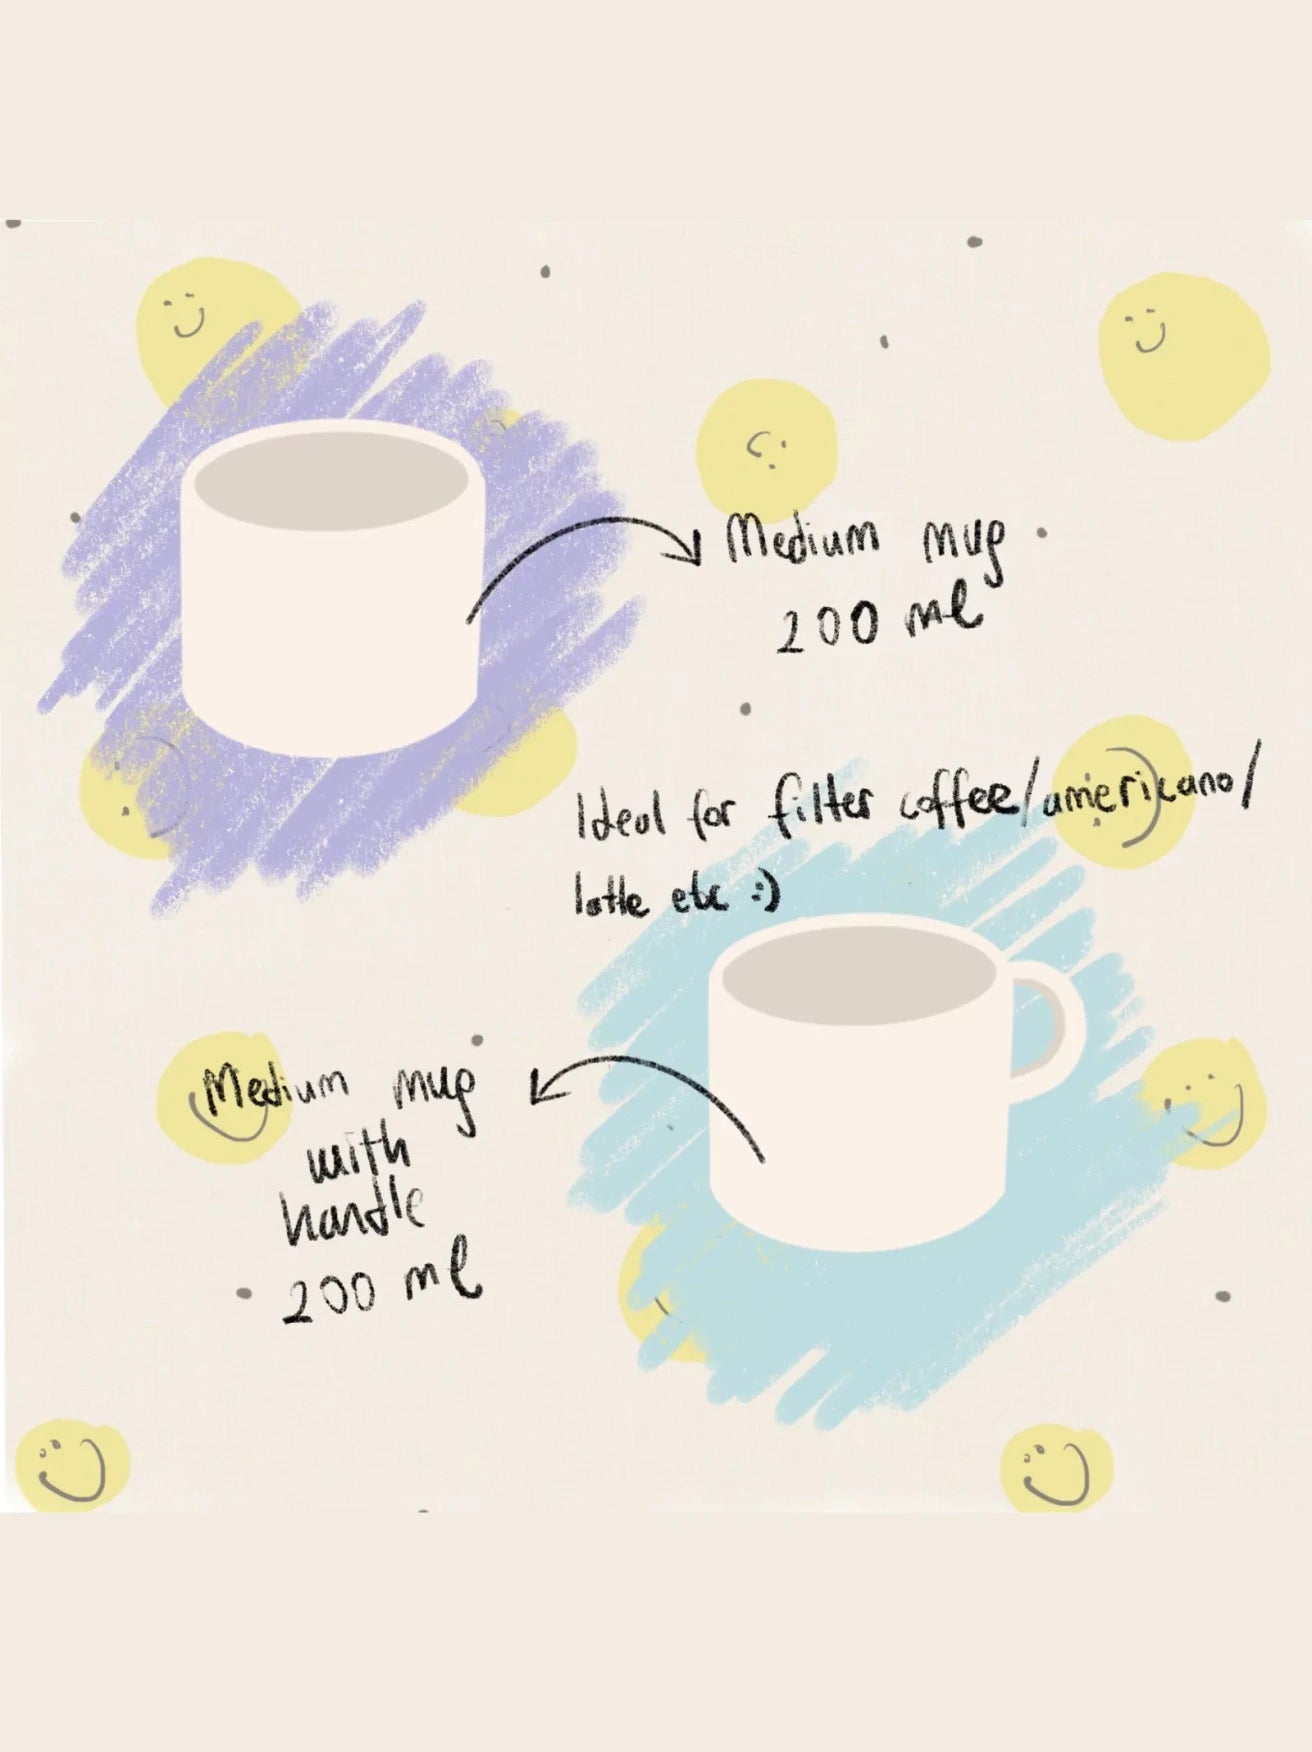 Medium mug
200 ml
Ideal for filter coffee/americano/
latte etc :)
Medium mug
with
handle
200 ml